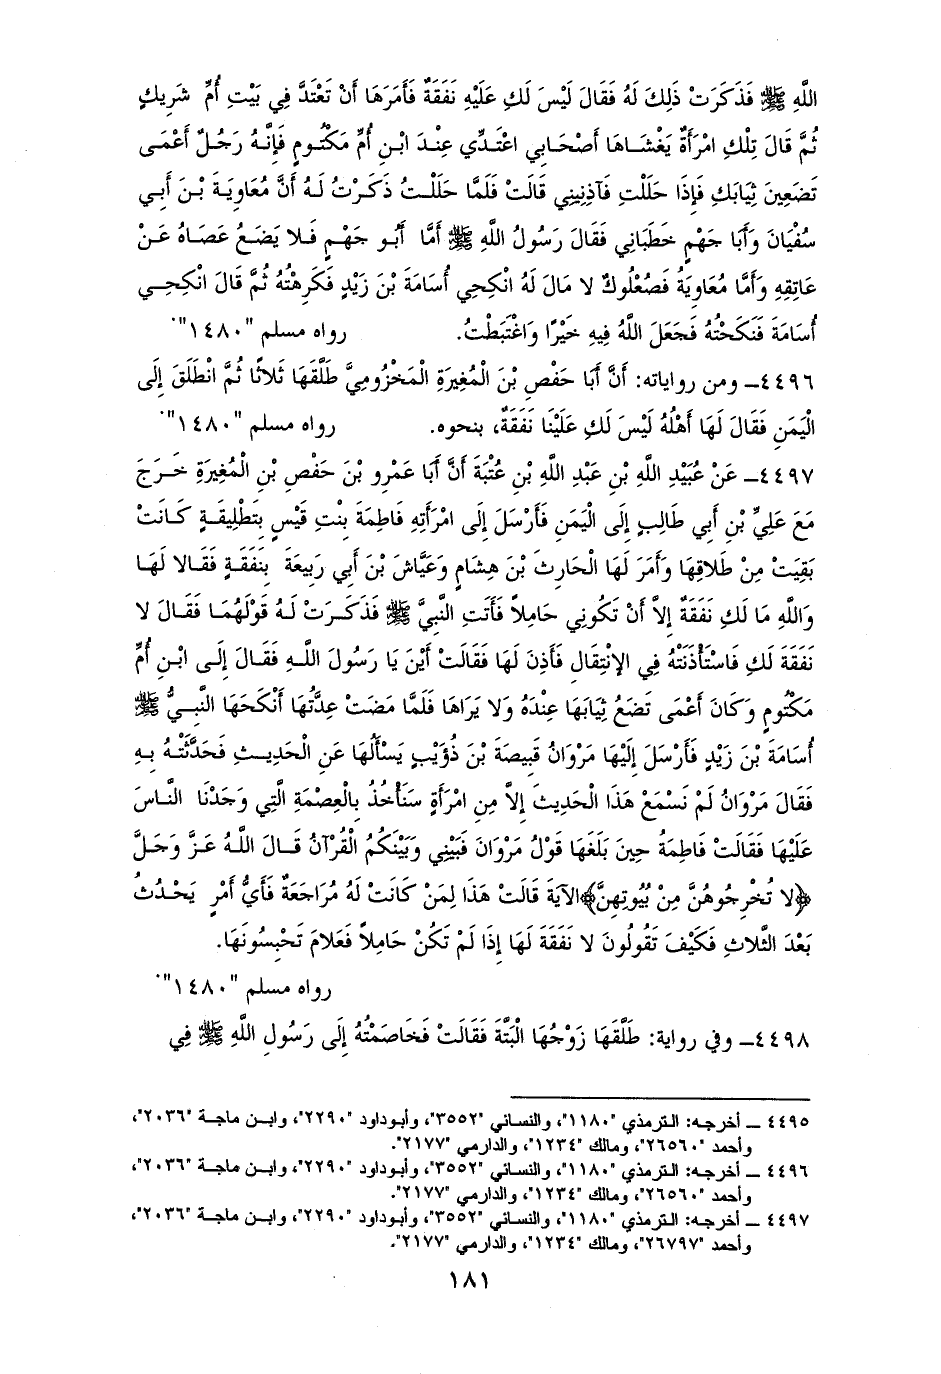 اللَّهِ ﷺ فَذَكَرَتْ ذَلِكَ لَهُ فَقَالَ لَيْسَ لَكِ عَلَيْهِ نَفَقَةٌ فَأَمَرَهَا أَنْ تَعْتَدَّ فِي بَيْتِ أُمِّ شَرِيكٍ
ثُمَّ قَالَ تِلْكِ امْرَأَةٌ يَغْشَاهَا أَصْحَابِي اعْتَدِّي عِنْدَ ابْنِ أُمِّ مَكْتُومٍ فَإِنَّهُ رَجُلٌ أَعْمَى
تَضَعِينَ ثِيَابَكِ فَإِذَا حَلَلْتِ فَآذِنِينِي قَالَتْ فَلَمَّا حَلَلْتُ ذَكَرْتُ لَهُ أَنَّ مُعَاوِيَةَ بْنَ أَبِي
سُفْيَانَ وَأَبَا جَهْمٍ خَطَبَانِي فَقَالَ رَسُولُ اللَّهِ ﷺ أَمَّا أَبُو جَهْمٍ فَلا يَضَعُ عَصَاهُ عَنْ
عَاتِقِهِ وَأَمَّا مُعَاوِيَةُ فَصُعْلُوكٌ لا مَالَ لَهُ انْكِحِي أُسَامَةَ بْنَ زَيْدٍ فَكَرِهْتُهُ ثُمَّ قَالَ انْكِحِي
أُسَامَةَ فَنَكَحْتُهُ فَجَعَلَ اللَّهُ فِيهِ خَيْرًا وَاغْتَبَطْتُ. رواه مسلم "١٤٨٠".
٤٤٩٦ـ ومن رواياته: أَنَّ أَبَا حَفْصِ بْنَ الْمُغِيرَةِ الْمَخْزُومِيَّ طَلَّقَهَا ثَلاثًا ثُمَّ انْطَلَقَ إِلَى
الْيَمَنِ فَقَالَ لَهَا أَهْلُهُ لَيْسَ لَكِ عَلَيْنَا نَفَقَةٌ، بنحوه. رواه مسلم "١٤٨٠".
٤٤٩٧ـ عَنْ عُبَيْدِ اللَّهِ بْنِ عَبْدِ اللَّهِ بْنِ عُتْبَةَ أَنَّ أَبَا عَمْرِو بْنَ حَفْصِ بْنِ الْمُغِيرَةِ خَرَجَ
مَعَ عَلِيِّ بْنِ أَبِي طَالِبٍ إِلَى الْيَمَنِ فَأَرْسَلَ إِلَى امْرَأَتِهِ فَاطِمَةَ بِنْتِ قَيْسٍ بِتَطْلِيقَةٍ كَانَتْ
بَقِيَتْ مِنْ طَلاقِهَا وَأَمَرَ لَهَا الْحَارِثَ بْنَ هِشَامٍ وَعَيَّاشَ بْنَ أَبِي رَبِيعَةَ بِنَفَقَةٍ فَقَالا لَهَا
وَاللَّهِ مَا لَكِ نَفَقَةٌ إِلاَّ أَنْ تَكُونِي حَامِلاً فَأَتَتِ النَّبِيَّ ﷺ فَذَكَرَتْ لَهُ قَوْلَهُمَا فَقَالَ لا
نَفَقَةَ لَكِ فَاسْتَأْذَنَتْهُ فِي الإِنْتِقَالِ فَأَذِنَ لَهَا فَقَالَتْ أَيْنَ يَا رَسُولَ اللَّهِ فَقَالَ إِلَى ابْنِ أُمِّ
مَكْتُومٍ وَكَانَ أَعْمَى تَضَعُ ثِيَابَهَا عِنْدَهُ وَلا يَرَاهَا فَلَمَّا مَضَتْ عِدَّتُهَا أَنْكَحَهَا النَّبِيُّ ﷺ
أُسَامَةَ بْنَ زَيْدٍ فَأَرْسَلَ إِلَيْهَا مَرْوَانُ قَبِيصَةَ بْنَ ذُؤَيْبٍ يَسْأَلُهَا عَنِ الْحَدِيثِ فَحَدَّثَتْهُ بِهِ
فَقَالَ مَرْوَانُ لَمْ نَسْمَعْ هَذَا الْحَدِيثَ إِلاَّ مِنِ امْرَأَةٍ سَنَأْخُذُ بِالْعِصْمَةِ الَّتِي وَجَدْنَا النَّاسَ
عَلَيْهَا فَقَالَتْ فَاطِمَةُ حِينَ بَلَغَهَا قَوْلُ مَرْوَانَ فَبَيْنِي وَبَيْنَكُمُ الْقُرْآنُ قَالَ اللَّهُ عَزَّ وَجَلَّ
﴿لا تُخْرِجُوهُنَّ مِنْ بُيُوتِهِنَّ﴾الآيَةَ قَالَتْ هَذَا لِمَنْ كَانَتْ لَهُ مُرَاجَعَةٌ فَأَيُّ أَمْرٍ يَحْدُثُ
بَعْدَ الثَّلاثِ فَكَيْفَ تَقُولُونَ لا نَفَقَةَ لَهَا إِذَا لَمْ تَكُنْ حَامِلاً فَعَلامَ تَحْبِسُونَهَا.
رواه مسلم "١٤٨٠".
٤٤٩٨ـ وفي رواية: طَلَّقَهَا زَوْجُهَا الْبَتَّةَ فَقَالَتْ فَخَاصَمْتُهُ إِلَى رَسُولِ اللَّهِ ﷺ فِي
٤٤٩٥ ـ أخرجه: الترمذي "١١٨٠"، والنسائي "٣٥٥٢"، وأبوداود "٢٢٩٠"، وابن ماجة "٢٠٣٦"،
وأحمد "٢٦٥٦٠"، ومالك "١٢٣٤"، والدارمي "٢١٧٧".
٤٤٩٦ ـ أخرجه: الترمذي "١١٨٠"، والنسائي "٣٥٥٢"، وأبوداود "٢٢٩٠"، وابن ماجة "٢٠٣٦"،
وأحمد "٢٦٥٦٠"، ومالك "١٢٣٤"، والدارمي "٢١٧٧".
٤٤٩٧ ـ أخرجه: الترمذي "١١٨٠"، والنسائي "٣٥٥٢"، وأبوداود "٢٢٩٠"، وابن ماجة "٢٠٣٦"،
وأحمد "٢٦٧٩٧"، ومالك "١٢٣٤"، والدارمي "٢١٧٧".
١٨١